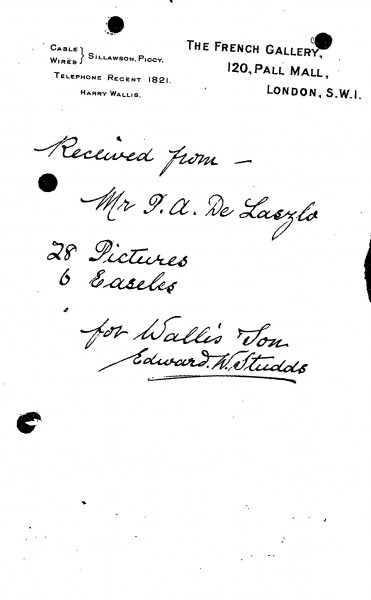 CABLE } SILLAWSON, PICCY.
WIRES
TELEPHONE REGENT 1821.
HARRY WALLIS.
THE FRENCH GALLERY,
120, PALL MALL,
LONDON, S.W.1.
Received from —
Mr P. A. De Laszlo
28 Pictures
6 Easeles
for Wallis & Son
Edward. W. Studds